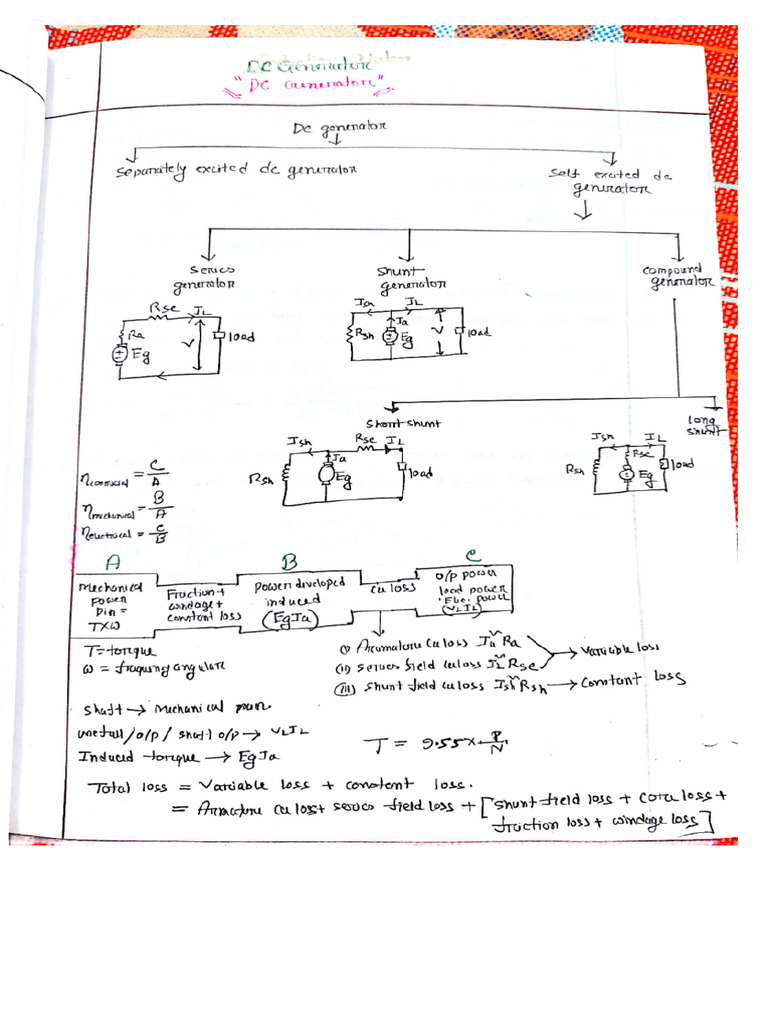 DC Generator
"DC Generator"
Dc generator
Separately excited dc generator
Self excited dc
generator
series
generator
shunt
generator
compound
generator
Rse IL
Ra
Eg
V
load
Ish IL
Ia
Rsh
Eg
V
load
Short shunt
long
shunt
Ish Rse IL
Ia
Rsh
Eg
load
Ish IL
Rse
Rsh
Eg
load
ηcommercial = C/A
ηmechanical = B/A
ηelectrical = C/B
A B C
Mechanical
Power
Pin =
TXω
Friction +
windage +
constant loss
Power developed
induced
(EgIa)
cu loss
o/p power
load power
Elec. power
(VLIL)
T = torque
ω =
(i) Armature cu loss Ia²Ra
(ii) series field cu loss IL²Rse
→ Variable loss
(iii) Shunt field cu loss Ish²Rsh → Constant loss
Shaft → Mechanical power.
/o/p / shaft o/p → VLIL
Induced torque → EgIa
T = 9.55 × P/N.
Total loss = Variable loss + constent loss.
= Armature cu loss + series field loss + [shunt field loss + core loss +
friction loss + windage loss]